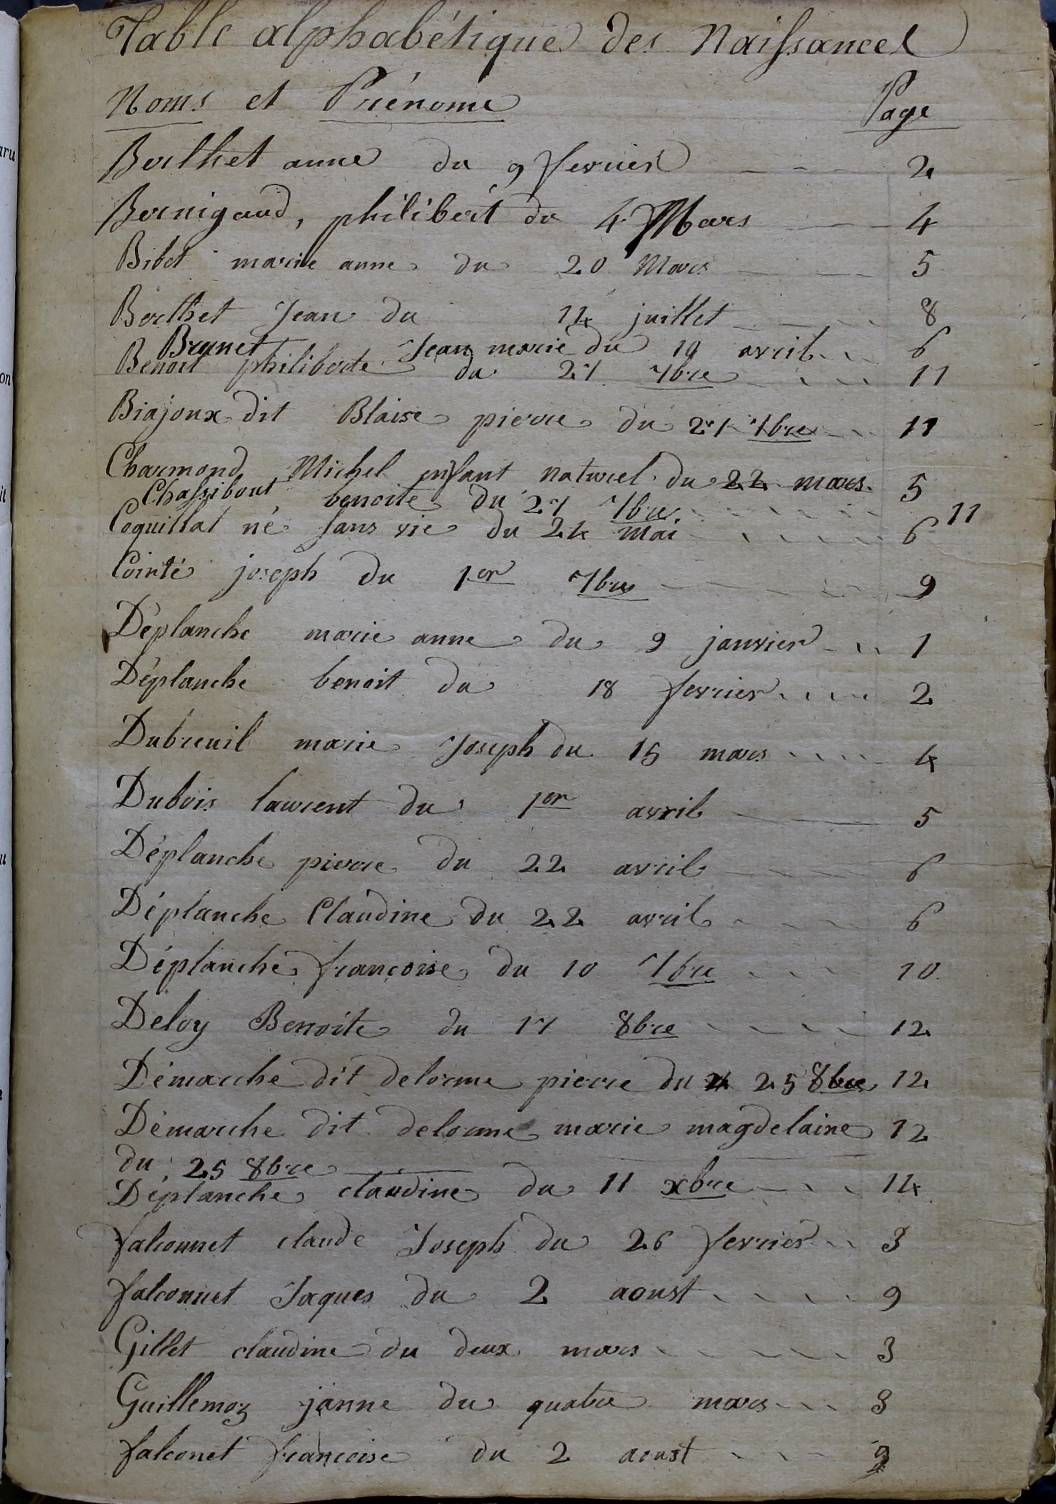 Table alphabétique des Naissances
Noms et Prénoms Page
Berthet anne du 9 fevrier 2
Bernigaud, philibert du 4 Mars 4
Bibet marie anne du 20 Mars 5
Berthet Jean du 14 juillet 8
Brunet Jean marie du 19 avril 6
Benoit philiberte du 27 7bre 11
Biajoux dit Blaise pierre du 27 7bre 11
Charmond Michel enfant naturel du 22 mars 5
Chassibout benoite du 27 7bre 11
Coquillat né sans vie du 24 mai 6
Cointé joseph du 1er 7bre 9
Déplanche marie anne du 9 janvier 1
Déplanche benoit du 18 fevrier 2
Dubreuil marie Joseph du 15 mars 4
Dubois laurent du 1er avril 5
Déplanche pierre du 22 avril 6
Déplanche Claudine du 22 avril 6
Déplanche françoise du 10 7bre 10
Deloy Benoite du 17 8bre 12
Démarche dit delorme pierre du 25 8bre 12
Démarche dit delorme marie magdelaine 12
du 25 8bre
Déplanche claudine du 11 xbre 14
falconnet claude Joseph du 26 fevrier 3
falconnet Jaques du 2 aoust 9
Gillet claudine du deux mars 3
Guillemoz janne du quatre mars 3
falconet françoise du 2 aoust 9